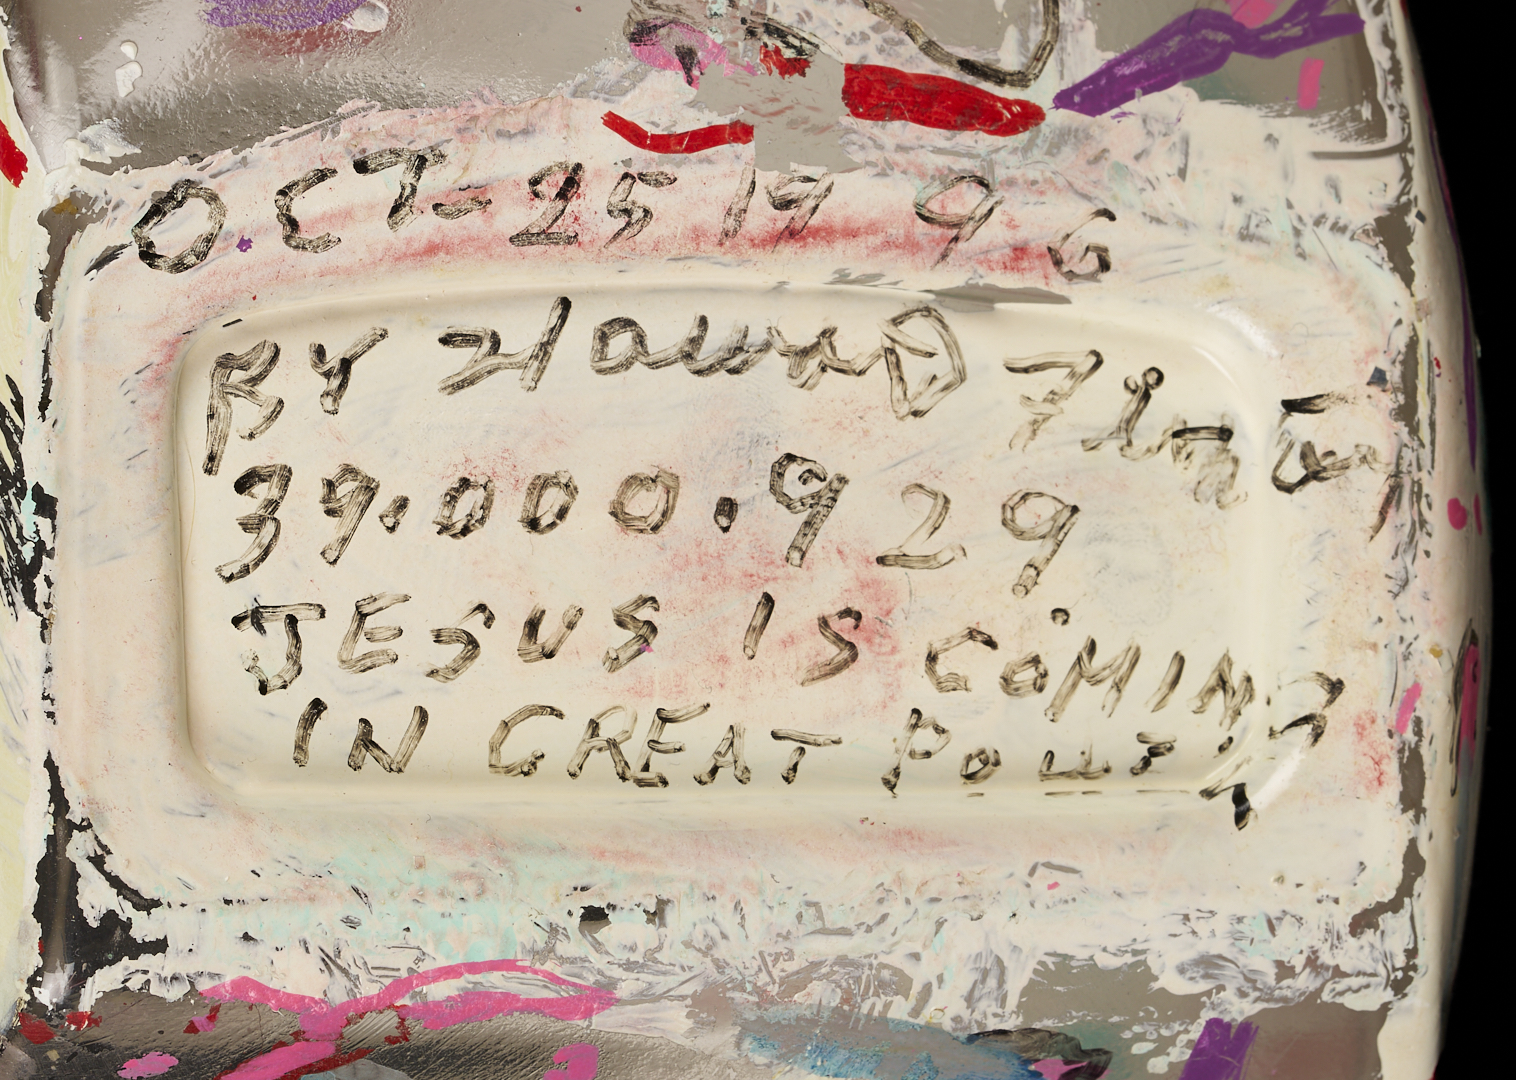 OCT-25 19 96
BY HOWARD Finster
39.000.929
JESUS IS COMING
IN GREAT POWER